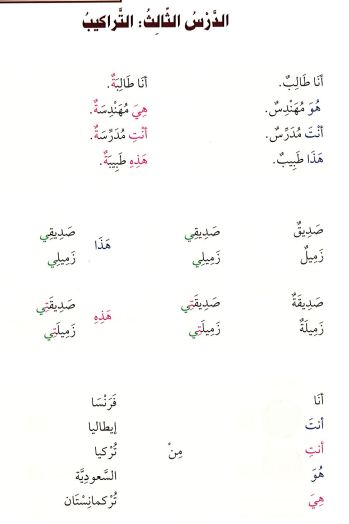 الدَّرْسُ الثَّالِثُ: التَّراكيبُ
أنَا طَالِبٌ. أنَا طَالِبَةٌ.
هُوَ مُهَنْدِسٌ. هِيَ مُهَنْدِسَةٌ.
أنْتَ مُدَرِّسٌ. أنْتِ مُدَرِّسَةٌ.
هَذَا طَبِيبٌ. هَذِهِ طَبِيبَةٌ.
صَدِيقٌ صَدِيقِي هَذَا صَدِيقِي
زَمِيلٌ زَمِيلِي زَمِيلِي
صَدِيقَةٌ صَدِيقَتِي هَذِهِ صَدِيقَتِي
زَمِيلَةٌ زَمِيلَتِي زَمِيلَتِي
أنَا فَرَنْسَا
أنتَ إيطاليا
أنتِ مِنْ تُرْكيا
هُوَ السَّعوديَّة
هِيَ تُرْكمانِسْتَان